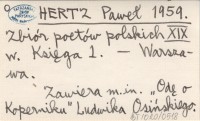 HERTZ Paweł 1959.
Zbiór poetów polskich XIX
w. Księga 1. — Warsza-
wa.
Zawiera m.in. „Odę o
Koperniku" Ludwika Osińskiego.